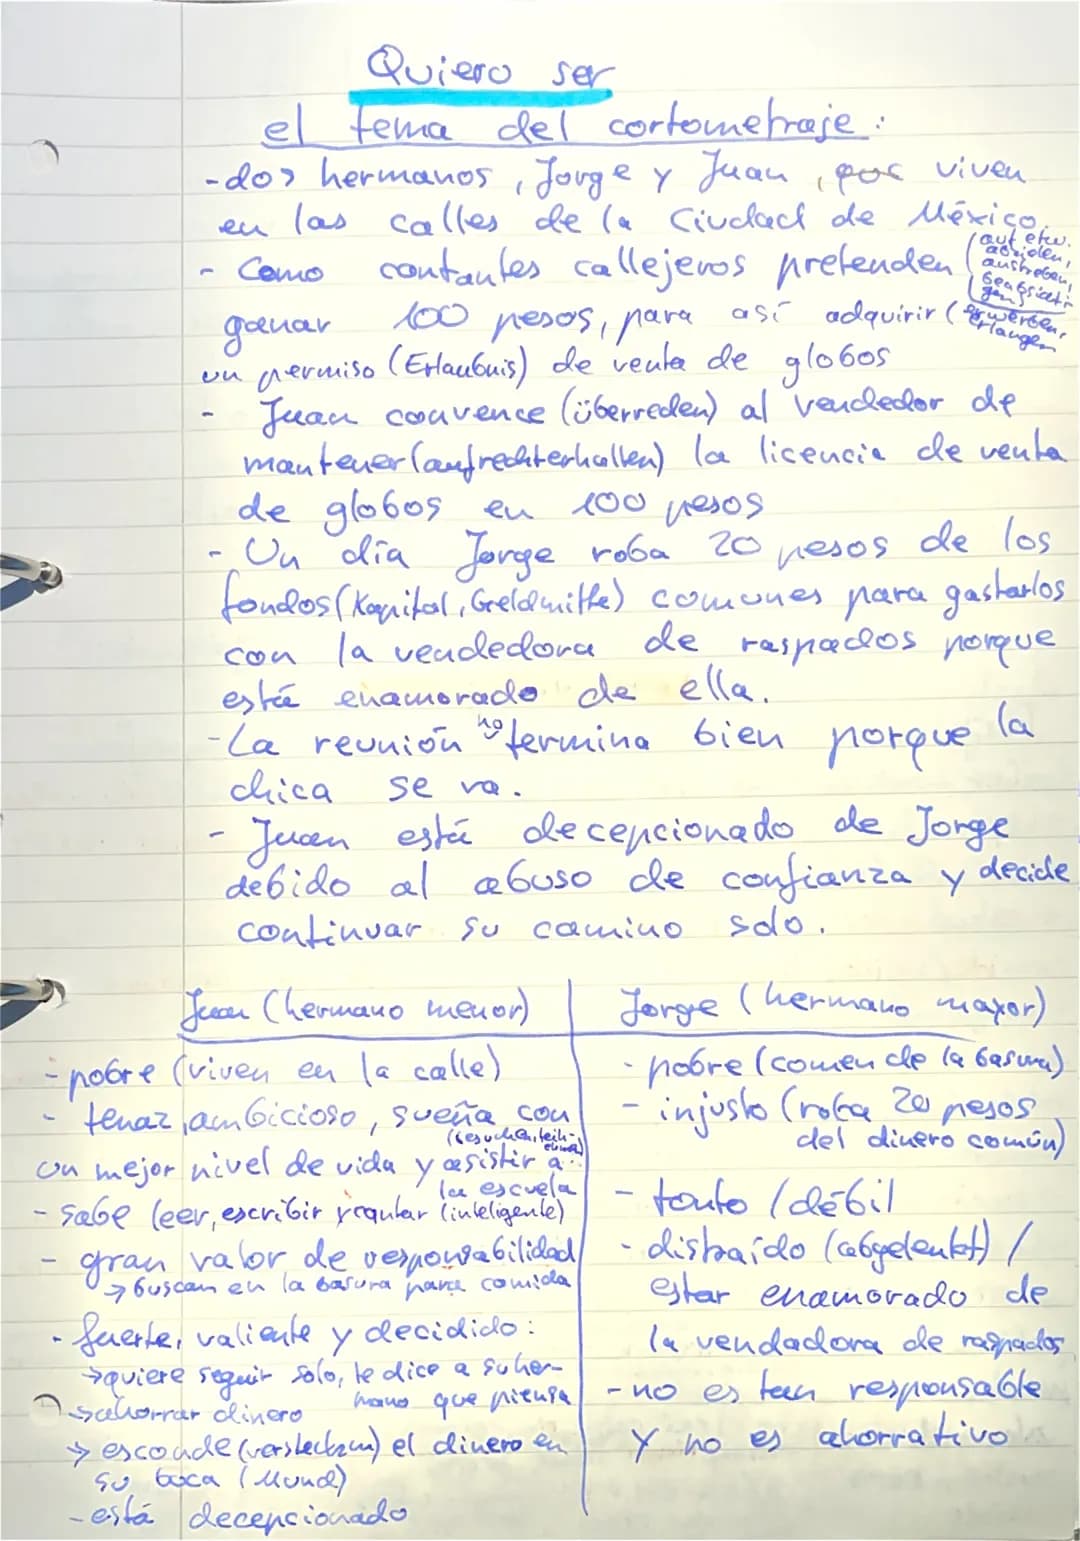 Quiero ser
el tema del cortometraje:
-dos hermanos, Jorge y Juan, viven
en las calles de la Ciudad de México.
- Como contantes callejeros pretenden (auf etw.
abzielen,
anstreben,
beabsichti
gen)
ganar 100 pesos, para así adquirir (erwerben,
erlangen
un permiso (Erlaubnis) de venta de globos
- Juan convence (überreden) al vendedor de
mantener (aufrechterhalten) la licencia de venta
de globos en 100 pesos
- Un día Jorge roba 20 pesos de los
fondos (Kapital, Geldmittel) comunes para gastarlos
con la vendedora de raspados porque
está enamorado de ella.
-La reunión no termina bien porque la
chica se va.
- Juan está decepcionado de Jorge
debido al abuso de confianza y decide
continuar su camino solo.
Juan (hermano menor)
- pobre (viven en la calle)
- tenaz, ambicioso, sueña con
un mejor nivel de vida y asistir a
la escuela
- sabe leer, escribir y (inteligente)
- gran valor de responsabilidad
→ buscan en la basura para comida
- fuerte, valiente y decidido:
→ quiere seguir solo, le dice a su her-
mano que piensa
→ ahorrar dinero
→ esconde (verstecken) el dinero en
su boca (Mund)
- está decepcionado
Jorge (hermano mayor)
- pobre (comen de la basura)
- injusto (roba 20 pesos
del dinero común)
- tonto / débil
- distraído (abgelenkt) /
estar enamorado de
la vendadora de raspados
- no es tan responsable
y no es ahorrativo